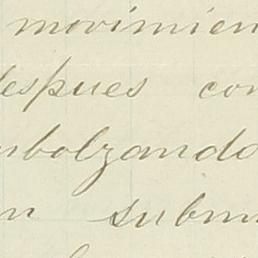 movimien
espues con
mbolzando
n subm